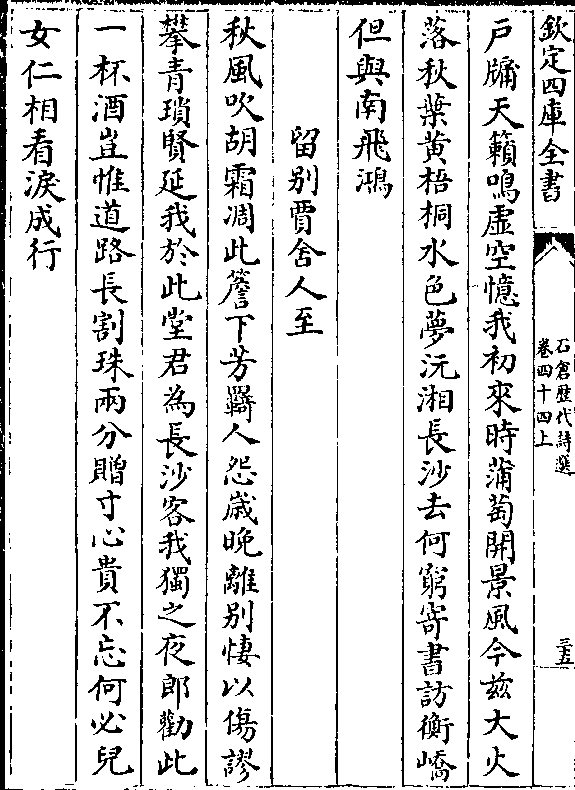 欽定四庫全書
石倉歷代詩選
卷四十四上
三五
戸牖天籟鳴虛空憶我初來時蒲萄開景風今兹大火
落秋葉黄梧桐水色夢沅湘長沙去何窮寄書訪衡嶠
但與南飛鴻
留别賈舍人至
秋風吹胡霜凋此簷下芳羇人怨歳晚離别悽以傷謬
攀青瑣賢延我於此堂君為長沙客我獨之夜郎勸此
一杯酒豈惟道路長割珠兩分贈寸心貴不忘何必兒
女仁相看淚成行